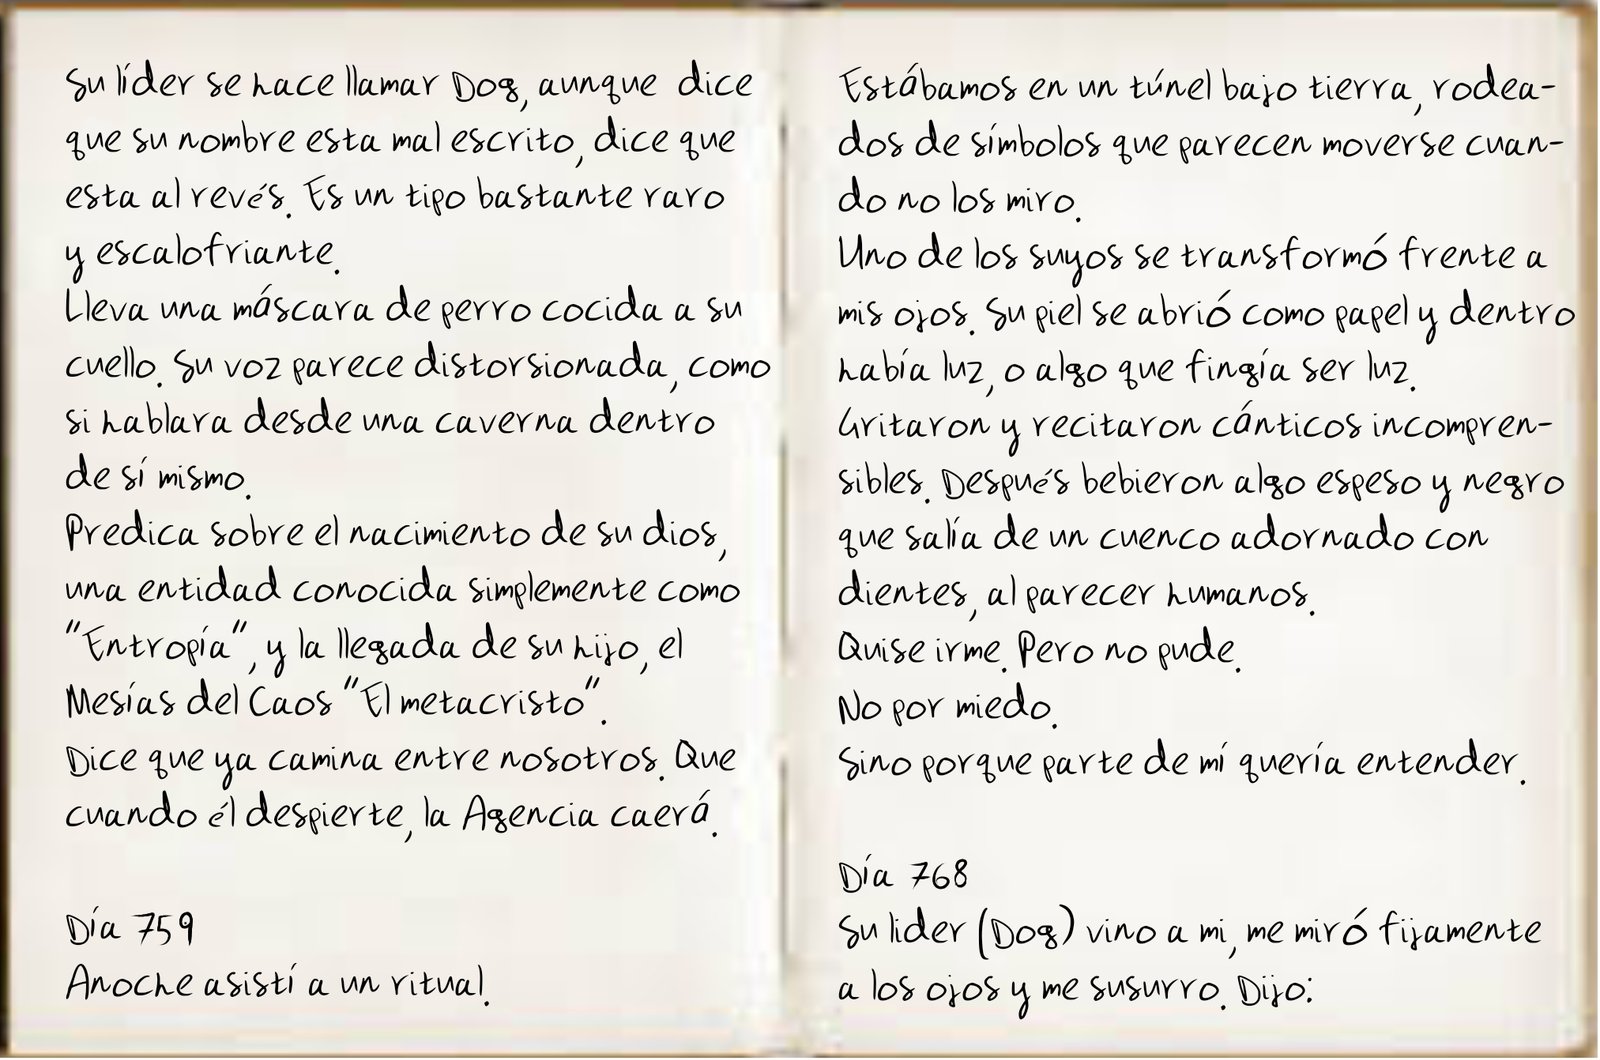 Su líder se hace llamar Dog, aunque dice
que su nombre esta mal escrito, dice que
esta al revés. Es un tipo bastante raro
y escalofriante.
Lleva una máscara de perro cocida a su
cuello. Su voz parece distorsionada, como
si hablara desde una caverna dentro
de sí mismo.
Predica sobre el nacimiento de su dios,
una entidad conocida simplemente como
"Entropía", y la llegada de su hijo, el
Mesías del Caos "El metacristo".
Dice que ya camina entre nosotros. Que
cuando él despierte, la Agencia caerá.
Día 759
Anoche asistí a un ritual.
Estábamos en un túnel bajo tierra, rodea-
dos de símbolos que parecen moverse cuan-
do no los miro.
Uno de los suyos se transformó frente a
mis ojos. Su piel se abrió como papel y dentro
había luz, o algo que fingía ser luz.
Gritaron y recitaron cánticos incompren-
sibles. Después bebieron algo espeso y negro
que salía de un cuenco adornado con
dientes, al parecer humanos.
Quise irme. Pero no pude.
No por miedo.
Sino porque parte de mí quería entender.
Día 768
Su lider (Dog) vino a mi, me miró fijamente
a los ojos y me susurro. Dijo: